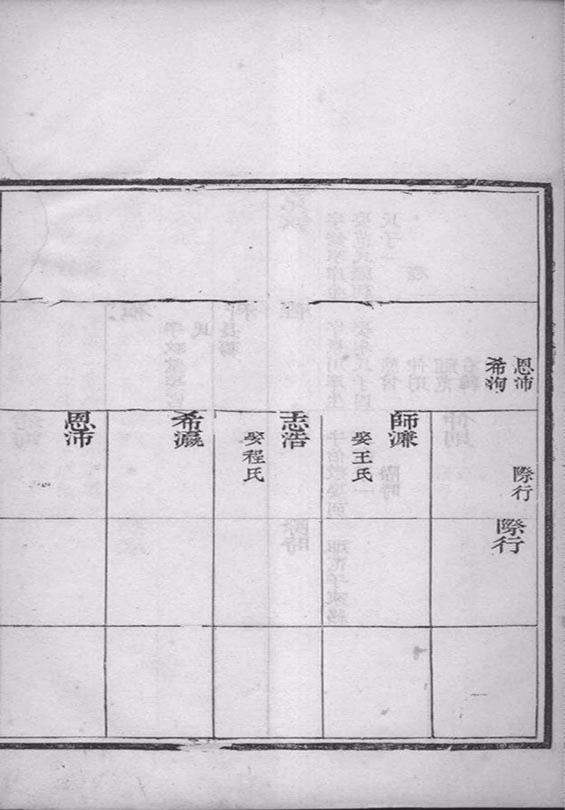 恩沛
希洵
際行
際行
師濂
娶王氏
志浩
娶程氏
希瀛
恩沛